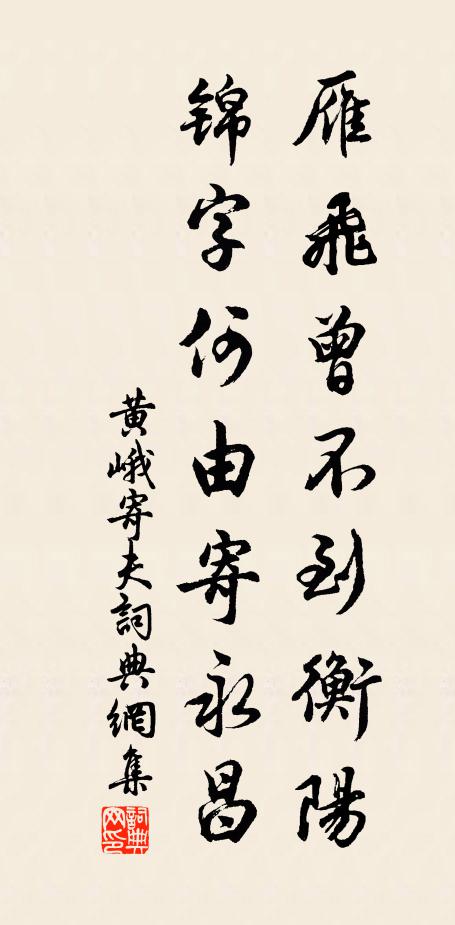 雁飛曾不到衡陽
錦字何由寄永昌
黄峨寄夫詞典網集
詞典网印